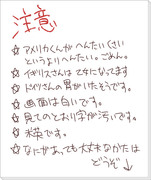 注意
☆ アメリカくんがへんたいくさい
というよりへんたい。ごめん。
☆ イギリスさんは乙女になってます
☆ ドイツさんの胃がいたそうです。
☆ 画面は白いです。
☆ 見てのとおり字が汚いです。
☆ 本家です。
☆ なにがあっても大丈夫なかたは
どうぞ↓